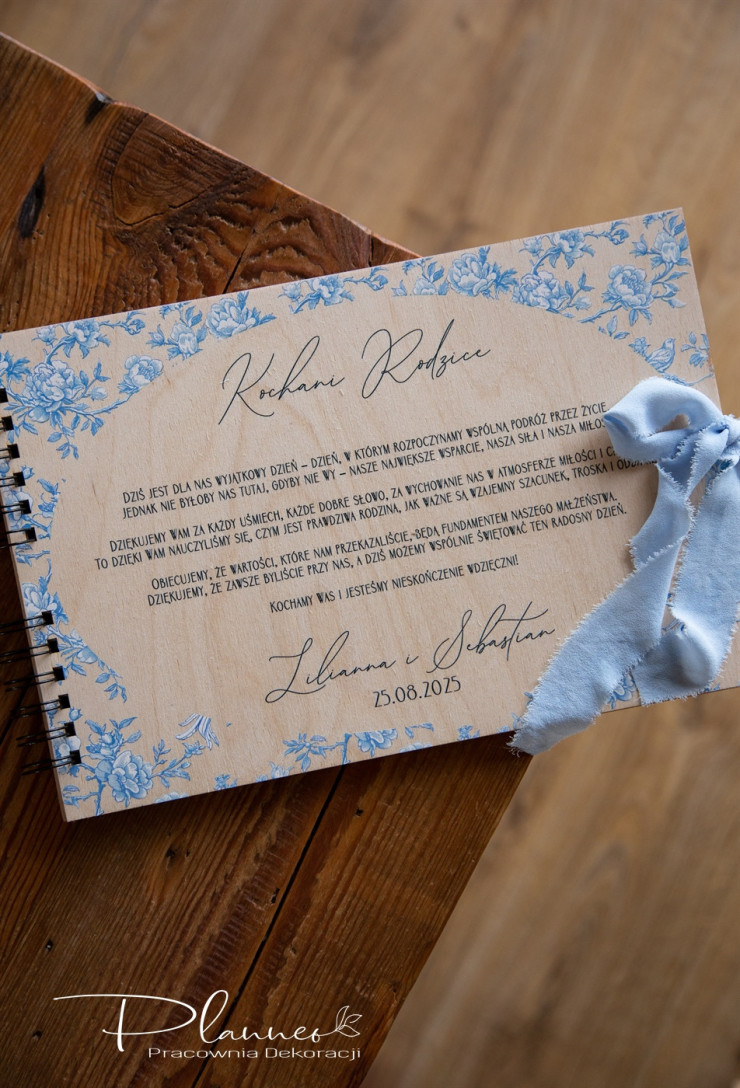 Kochani Rodzice
DZIŚ JEST DLA NAS WYJĄTKOWY DZIEŃ – DZIEŃ, W KTÓRYM ROZPOCZYNAMY WSPÓLNĄ PODRÓŻ PRZEZ ŻYCIE
JEDNAK NIE BYŁOBY NAS TUTAJ, GDYBY NIE WY – NASZE NAJWIĘKSZE WSPARCIE, NASZA SIŁA I NASZA
DZIĘKUJEMY WAM ZA KAŻDY UŚMIECH, KAŻDE DOBRE SŁOWO, ZA WYCHOWANIE NAS W ATMOSFERZE MIŁOŚCI I
TO DZIĘKI WAM NAUCZYLIŚMY SIĘ, CZYM JEST PRAWDZIWA RODZINA, JAK WAŻNE SĄ WZAJEMNY SZACUNEK, TROSKA I
OBIECUJEMY, ŻE WARTOŚCI, KTÓRE NAM PRZEKAZALIŚCIE, BĘDĄ FUNDAMENTEM NASZEGO MAŁŻEŃSTWA.
DZIĘKUJEMY, ŻE ZAWSZE BYLIŚCIE PRZY NAS, A DZIŚ MOŻEMY WSPÓLNIE ŚWIĘTOWAĆ TEN RADOSNY DZIEŃ.
KOCHAMY WAS I JESTEŚMY NIESKOŃCZENIE WDZIĘCZNI!
Lilianna i Sebastian
25.08.2025
Planneo
Pracownia Dekoracji